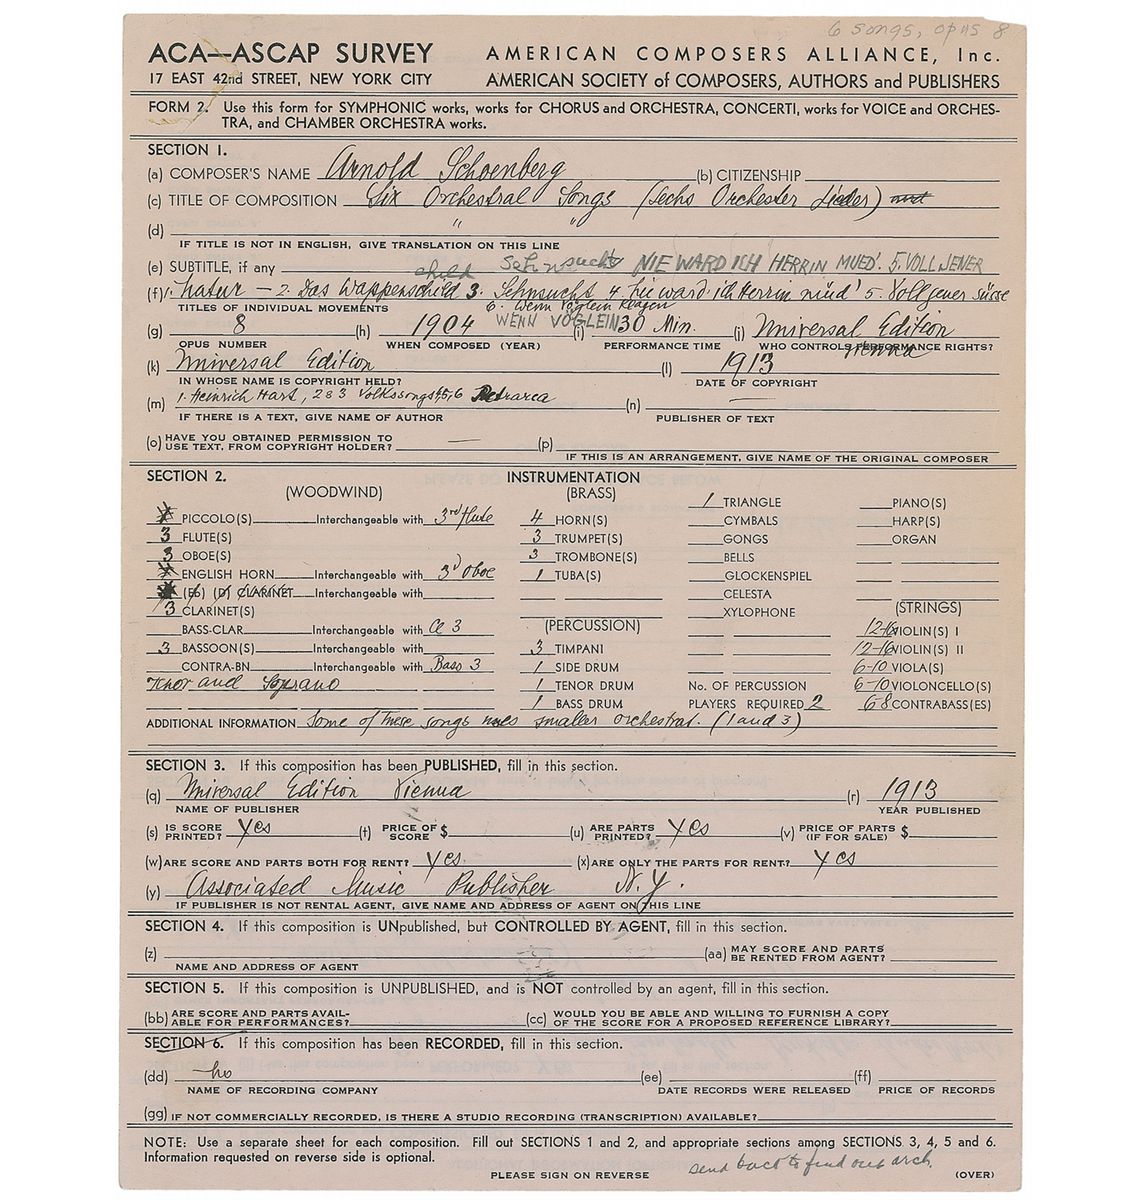 6 songs, opus 8
ACA—ASCAP SURVEY
17 EAST 42nd STREET, NEW YORK CITY
AMERICAN COMPOSERS ALLIANCE, Inc.
AMERICAN SOCIETY of COMPOSERS, AUTHORS and PUBLISHERS
FORM 2. Use this form for SYMPHONIC works, works for CHORUS and ORCHESTRA, CONCERTI, works for VOICE and ORCHES-
TRA, and CHAMBER ORCHESTRA works.
SECTION 1.
(a) COMPOSER'S NAME Arnold Schoenberg (b) CITIZENSHIP
(c) TITLE OF COMPOSITION Six Orchestral Songs (Sechs Orchester Lieder)
(d) " "
IF TITLE IS NOT IN ENGLISH, GIVE TRANSLATION ON THIS LINE
(e) SUBTITLE, if any child Sehnsucht NIE WARD ICH HERRIN MUED'. 5. VOLL JENER
(f) 1. Natur — 2. Das Wappenschild 3. Sehnsucht 4. Nie ward ich Herrin müd' 5. Voll jener süsse
TITLES OF INDIVIDUAL MOVEMENTS 6. Wenn Vöglein klagen
WENN VÖGLEIN
(g) 8 (h) 1904 (i) 30 Min. (j) Universal Edition
OPUS NUMBER WHEN COMPOSED (YEAR) PERFORMANCE TIME WHO CONTROLS PERFORMANCE RIGHTS? Vienna
(k) Universal Edition (l) 1913
IN WHOSE NAME IS COPYRIGHT HELD? DATE OF COPYRIGHT
(m) 1. Heinrich Hart, 2 & 3 Volkssongs 4, 5, 6 Petrarca (n) —
IF THERE IS A TEXT, GIVE NAME OF AUTHOR PUBLISHER OF TEXT
(o) HAVE YOU OBTAINED PERMISSION TO
USE TEXT, FROM COPYRIGHT HOLDER? — (p)
IF THIS IS AN ARRANGEMENT, GIVE NAME OF THE ORIGINAL COMPOSER
SECTION 2. INSTRUMENTATION
(WOODWIND) (BRASS)
1 TRIANGLE PIANO(S)
PICCOLO(S) Interchangeable with 3rd flute 4 HORN(S) CYMBALS HARP(S)
3 FLUTE(S) 3 TRUMPET(S) GONGS ORGAN
3 OBOE(S) 3 TROMBONE(S) BELLS
ENGLISH HORN Interchangeable with 3d Oboe 1 TUBA(S) GLOCKENSPIEL
(Eb) (D) CLARINET Interchangeable with CELESTA
3 CLARINET(S) XYLOPHONE (STRINGS)
BASS-CLAR Interchangeable with Cl 3 (PERCUSSION) 12-16 VIOLIN(S) I
3 BASSOON(S) 3 TIMPANI 12-16 VIOLIN(S) II
CONTRA-BN Interchangeable with Bass 3 1 SIDE DRUM 6-10 VIOLA(S)
Tenor and Soprano 1 TENOR DRUM No. OF PERCUSSION 6-10 VIOLONCELLO(S)
1 BASS DRUM PLAYERS REQUIRED 2 6 8 CONTRABASS(ES)
ADDITIONAL INFORMATION Some of these songs smaller orchestras. (1 and 3)
SECTION 3. If this composition has been PUBLISHED, fill in this section.
(q) Universal Edition Vienna (r) 1913
NAME OF PUBLISHER YEAR PUBLISHED
(s) IS SCORE PRINTED? Yes (t) PRICE OF SCORE $ (u) ARE PARTS PRINTED? Yes (v) PRICE OF PARTS (IF FOR SALE) $
(w) ARE SCORE AND PARTS BOTH FOR RENT? Yes. (x) ARE ONLY THE PARTS FOR RENT? Yes
(y) Associated Music Publisher N.Y.
IF PUBLISHER IS NOT RENTAL AGENT, GIVE NAME AND ADDRESS OF AGENT ON THIS LINE
SECTION 4. If this composition is UNpublished, but CONTROLLED BY AGENT, fill in this section.
(z) (aa) MAY SCORE AND PARTS
BE RENTED FROM AGENT?
NAME AND ADDRESS OF AGENT
SECTION 5. If this composition is UNPUBLISHED, and is NOT controlled by an agent, fill in this section.
(bb) ARE SCORE AND PARTS AVAIL- (cc) WOULD YOU BE ABLE AND WILLING TO FURNISH A COPY
ABLE FOR PERFORMANCES? OF THE SCORE FOR A PROPOSED REFERENCE LIBRARY?
SECTION 6. If this composition has been RECORDED, fill in this section.
(dd) no (ee) (ff)
NAME OF RECORDING COMPANY DATE RECORDS WERE RELEASED PRICE OF RECORDS
(gg) IF NOT COMMERCIALLY RECORDED, IS THERE A STUDIO RECORDING (TRANSCRIPTION) AVAILABLE?
NOTE: Use a separate sheet for each composition. Fill out SECTIONS 1 and 2, and appropriate sections among SECTIONS 3, 4, 5 and 6.
Information requested on reverse side is optional.
send back to find out arch.
PLEASE SIGN ON REVERSE (OVER)